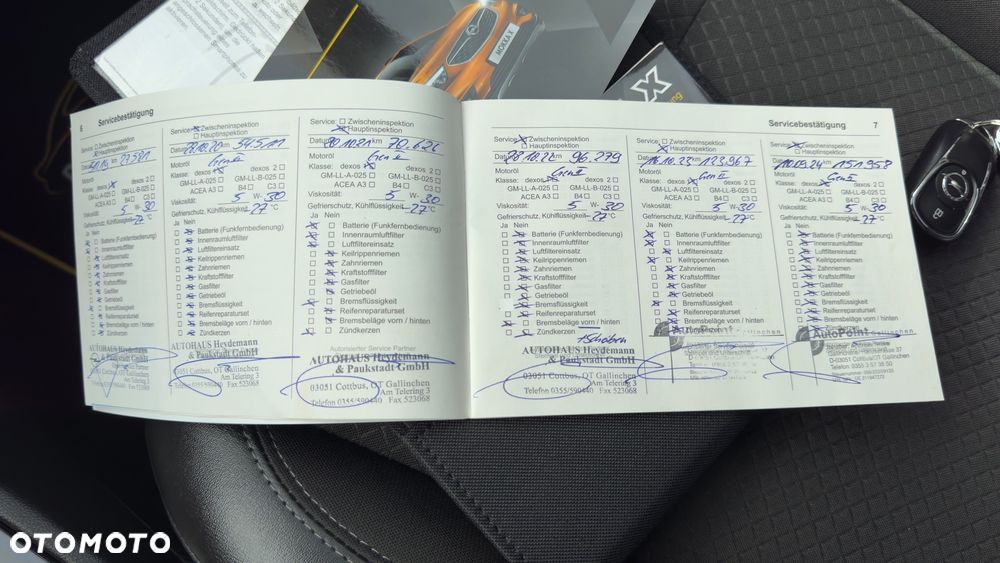 MOKKA X
X
6 Servicebestätigung
Service: Zwischeninspektion
Hauptinspektion
Datum km 27.581
Motoröl
Klasse: dexos dexos 2
GM-LL-A-025 GM-LL-B-025
ACEA A3 B4 C3
Viskosität: 5 W- 30
Gefrierschutz, Kühlflüssigkeit °C
Ja Nein
Batterie (Funkfernbedienung)
Innenraumluftfilter
Luftfiltereinsatz
Keilrippenriemen
Zahnriemen
Kraftstofffilter
Gasfilter
Getriebeöl
Bremsflüssigkeit
Reifenreparaturset
Bremsbeläge vorn / hinten
Zündkerzen
AUTOHAUS Heydemann
& Paukstadt GmbH
Service: Zwischeninspektion
Hauptinspektion
Datum 10.20 54.511 km
Motoröl
Klasse: dexos dexos 2
GM-LL-A-025 GM-LL-B-025
ACEA A3 B4 C3
Viskosität: 5 W- 30
Gefrierschutz, Kühlflüssigkeit 27 °C
Ja Nein
Batterie (Funkfernbedienung)
Innenraumluftfilter
Luftfiltereinsatz
Keilrippenriemen
Zahnriemen
Kraftstofffilter
Gasfilter
Getriebeöl
Bremsflüssigkeit
Reifenreparaturset
Bremsbeläge vorn / hinten
Zündkerzen
AUTOHAUS Heydemann
& Paukstadt GmbH
03051 Cottbus, OT Gallinchen
Am Telering 3
Telefon 0355/590440 Fax 523068
Service: Zwischeninspektion
Hauptinspektion
Datum 10.21 km 70.626
Motoröl
Klasse: dexos dexos 2
GM-LL-A-025 GM-LL-B-025
ACEA A3 B4 C3
Viskosität: 5 W- 30
Gefrierschutz, Kühlflüssigkeit 27 °C
Ja Nein
Batterie (Funkfernbedienung)
Innenraumluftfilter
Luftfiltereinsatz
Keilrippenriemen
Zahnriemen
Kraftstofffilter
Gasfilter
Getriebeöl
Bremsflüssigkeit
Reifenreparaturset
Bremsbeläge vorn / hinten
Zündkerzen
Autorisierter Service Partner
AUTOHAUS Heydemann
& Paukstadt GmbH
03051 Cottbus, OT Gallinchen
Am Telering 3
Telefon 0355/590440 Fax 523068
Servicebestätigung 7
Service: Zwischeninspektion
Hauptinspektion
Datum 10.22 km 96.279
Motoröl
Klasse: dexos dexos 2
GM-LL-A-025 GM-LL-B-025
ACEA A3 B4 C3
Viskosität: 5 W- 30
Gefrierschutz, Kühlflüssigkeit °C
Ja Nein
Batterie (Funkfernbedienung)
Innenraumluftfilter
Luftfiltereinsatz
Keilrippenriemen
Zahnriemen
Kraftstofffilter
Gasfilter
Getriebeöl
Bremsflüssigkeit
Reifenreparaturset
Bremsbeläge vorn / hinten
Zündkerzen
AUTOHAUS Heydemann
& Paukstadt GmbH
03051 Cottbus, OT Gallinchen
Am Telering 3
Telefon 0355/590440 Fax 523068
Service: Zwischeninspektion
Hauptinspektion
Datum 10.23 km 123.967
Motoröl
Klasse: dexos dexos 2
GM-LL-A-025 GM-LL-B-025
ACEA A3 B4 C3
Viskosität: 5 W- 30
Gefrierschutz, Kühlflüssigkeit 27 °C
Ja Nein
Batterie (Funkfernbedienung)
Innenraumluftfilter
Luftfiltereinsatz
Keilrippenriemen
Zahnriemen
Kraftstofffilter
Gasfilter
Getriebeöl
Bremsflüssigkeit
Reifenreparaturset
Bremsbeläge vorn / hinten
Service: Zwischeninspektion
Hauptinspektion
Datum 09.24 km 151.958
Motoröl
Klasse: dexos dexos 2
GM-LL-A-025 GM-LL-B-025
ACEA A3 B4 C3
Viskosität: 5 W- 30
Gefrierschutz, Kühlflüssigkeit 27 °C
Ja Nein
Batterie (Funkfernbedienung)
Innenraumluftfilter
Luftfiltereinsatz
Keilrippenriemen
Zahnriemen
Kraftstofffilter
Gasfilter
Getriebeöl
Bremsflüssigkeit
Reifenreparaturset
Bremsbeläge vorn / hinten
AutoPoint
Gallinchen
OTOMOTO